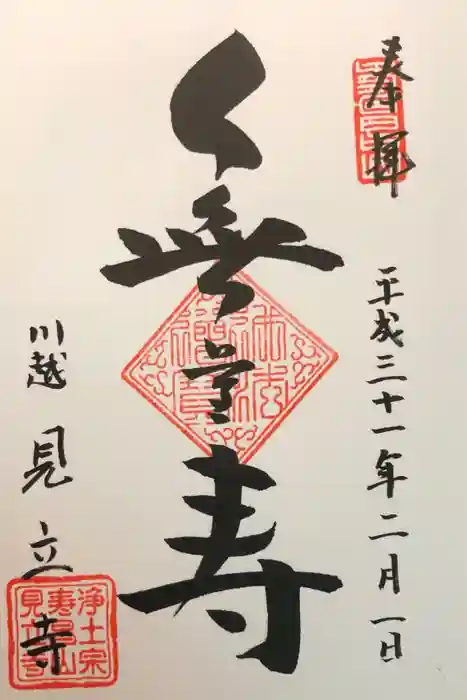 奉拝
平成三十一年二月一日
無量寿
佛法僧寶
川越 見立寺
浄土宗
寿昌山
見立寺